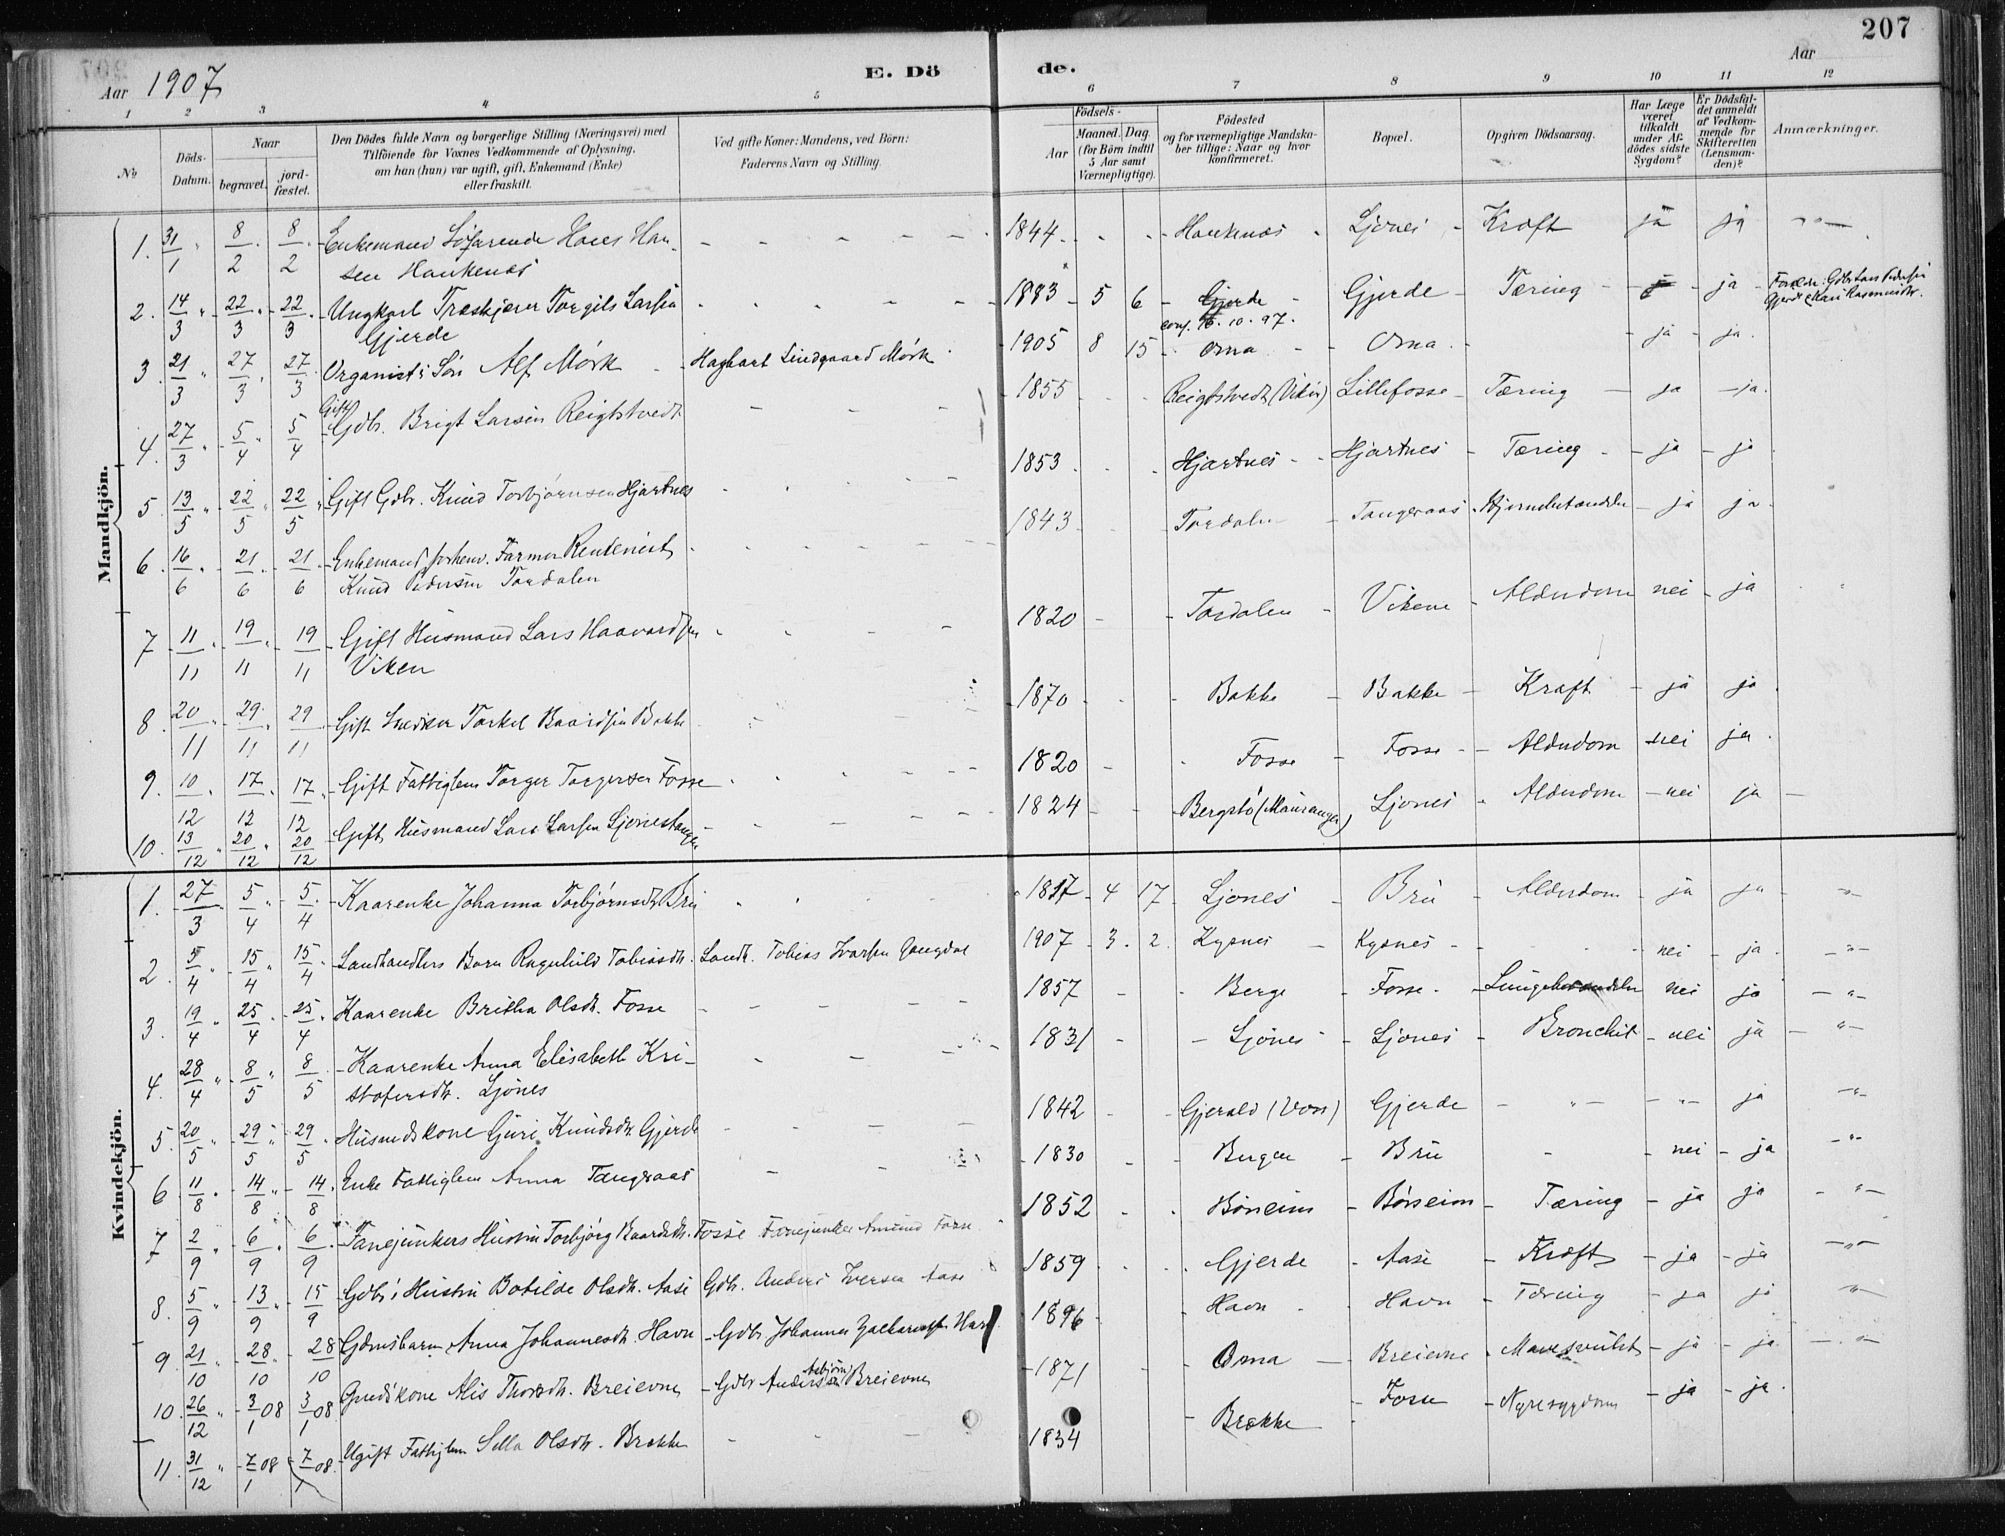 207
Aar 1907
E. Dö de.
Aar
1 2 3 4 5 6 7 8 9 10 11 12
No
Döds-Datum.
Naar
begravet.
jord-fæstet.
Den Dödes fulde Navn og borgerlige Stilling (Næringsvei) med
Tilföiende for Voxnes Vedkommende af Oplysning,
om han (hun) var ugift, gift, Enkemand (Enke)
eller fraskilt.
Ved gifte Koner: Mandens, ved Börn:
Faderens Navn og Stilling.
Födsels-
Aar
Maaned. Dag.
(for Börn indtil 5 Aar samt Værnepligtige).
Födested
og for værnepligtige Mandska-
ber tillige: Naar og hvor
konfirmeret.
Bopæl.
Opgiven Dödsaarsag.
Har Læge været tilkaldt under Afdödes sidste Sygdom?
Er Dödsfaldet anmeldt af Vedkommende for Skifteretten (Lensmanden)?
Anmærkninger.
Mandkjön.
1. 31/1 " 8/2 " 8/2 Enkemand Söfarende Hans Han- 1844 Hankenæs Ljones Kræft ja ja
sen Hankenæs
2. 14/3 " 22/3 " 22/3 Ungkarl Træskjærer Torgils Larsen 1883 5 6 Gjerde Gjerde Tæring ja Foræld: Gdbr Lars Pedersen
Gjerde conf. 16.10.97. Gjerde Kari Rasmusdtr.
3. 21/3 " 27/3 " 27/3 Organists Sön Alf Mörk Hagbart Lindgaard Mörk 1905 8 15 Oma Oma ja ja
Gift
4. 27/3 " 5/4 " 5/4 Gdbr. Brigt Larsen Reigstvedt 1855 Reigstvedt (Vikör) Lillefosse Tæring ja ja
5. 13/5 " 22/5 " 22/5 Gift Gdbr. Knud Torbjørnsen Hjartnes 1853 Hjartnes Hjartnes Tæring ja ja
6. 16/6 " 21/6 " 21/6 Enkemand forhenv. Farmer Rentenist 1843 Tordalen Tangeraas Hjernebetændelse ja ja
Knud Pedersen Tordalen
7. 11/11 " 19/11 " 19/11 Gift Husmand Lars Haavardsen 1820 Tordalen Vikene Alderdom nei ja
Viken
8. 20/11 " 29/11 " 29/11 Gift Snedker Torkel Baardsen Bakke 1870 Bakke Bakke Kræft ja ja
9. 10/12 " 17/12 " 17/12 Gift Fattiglem Torger Torgersen Fosse 1820 Fosse Fosse Alderdom nei ja
10. 13/12 " 20/12 " 20/12 Gift Husmand Lars Larsen Ljonestangen 1824 Bergstö (Mauranger) Ljones Alderdom nei ja
Kvindekjön.
1. 27/3 " 5/4 " 5/4 Kaarenke Johanna Torbjørnsdtr Bru 1817 4 17 Ljones Bru Alderdom ja ja
2. 5/4 " 15/4 " 15/4 Landhandlers Barn Ragnhild Tobiasdtr. Landh. Tobias Ivarsen Gangdal 1907 3 2 Kysnes Kysnes nei ja
3. 19/4 " 25/4 " 25/4 Kaarenke Britha Olsdtr. Fosse 1857 Berge Fosse Lungebetændelse nei ja
4. 28/4 " 8/5 " 8/5 Kaarenke Anna Elisabeth Kri- 1831 Ljönes Ljones Bronchit nei ja
stofersdtr. Ljönes
5. 20/5 " 29/5 " 29/5 Husmdskone Guri Knudsdtr Gjerde 1842 Gjerald (Voss) Gjerde ja
6. 11/8 " 14/8 " 14/8 Enke Fattiglem Anna Tangeraas 1830 Bergen Bru nei ja
7. 2/9 " 6/9 " 6/9 Fanejunkers Hustru Torbjörg Baardsdtr. Fosse Fanejunker Amund Fosse 1852 Börseim Börseim Tæring ja ja
8. 5/9 " 13/9 " 15/9 Gdbr's Hustru Botilde Olsdtr. Aase Gdbr. Anders Iversen Aase 1859 Gjerde Aase Kræft ja ja
9. 21/10 28/10 28/10 Gdmsbarn Anna Johannesdtr. Havn Gdbr Johannes Zakariassen Havn 1896 Havn Havn Tæring ja ja
10. 26/12 " 3/1 08 3/1 08 Gmdskone Alis Thorsdtr. Breievne Gdbr Asbjörn Andersen Breievne 1871 Oma Breievne Mavesvulst ja ja
11. 31/12 " 7/1 08 7/1 08 Ugift Fattiglem Sella Olsdtr. Brække 1834 Brække Fosse Nyresygdom ja ja